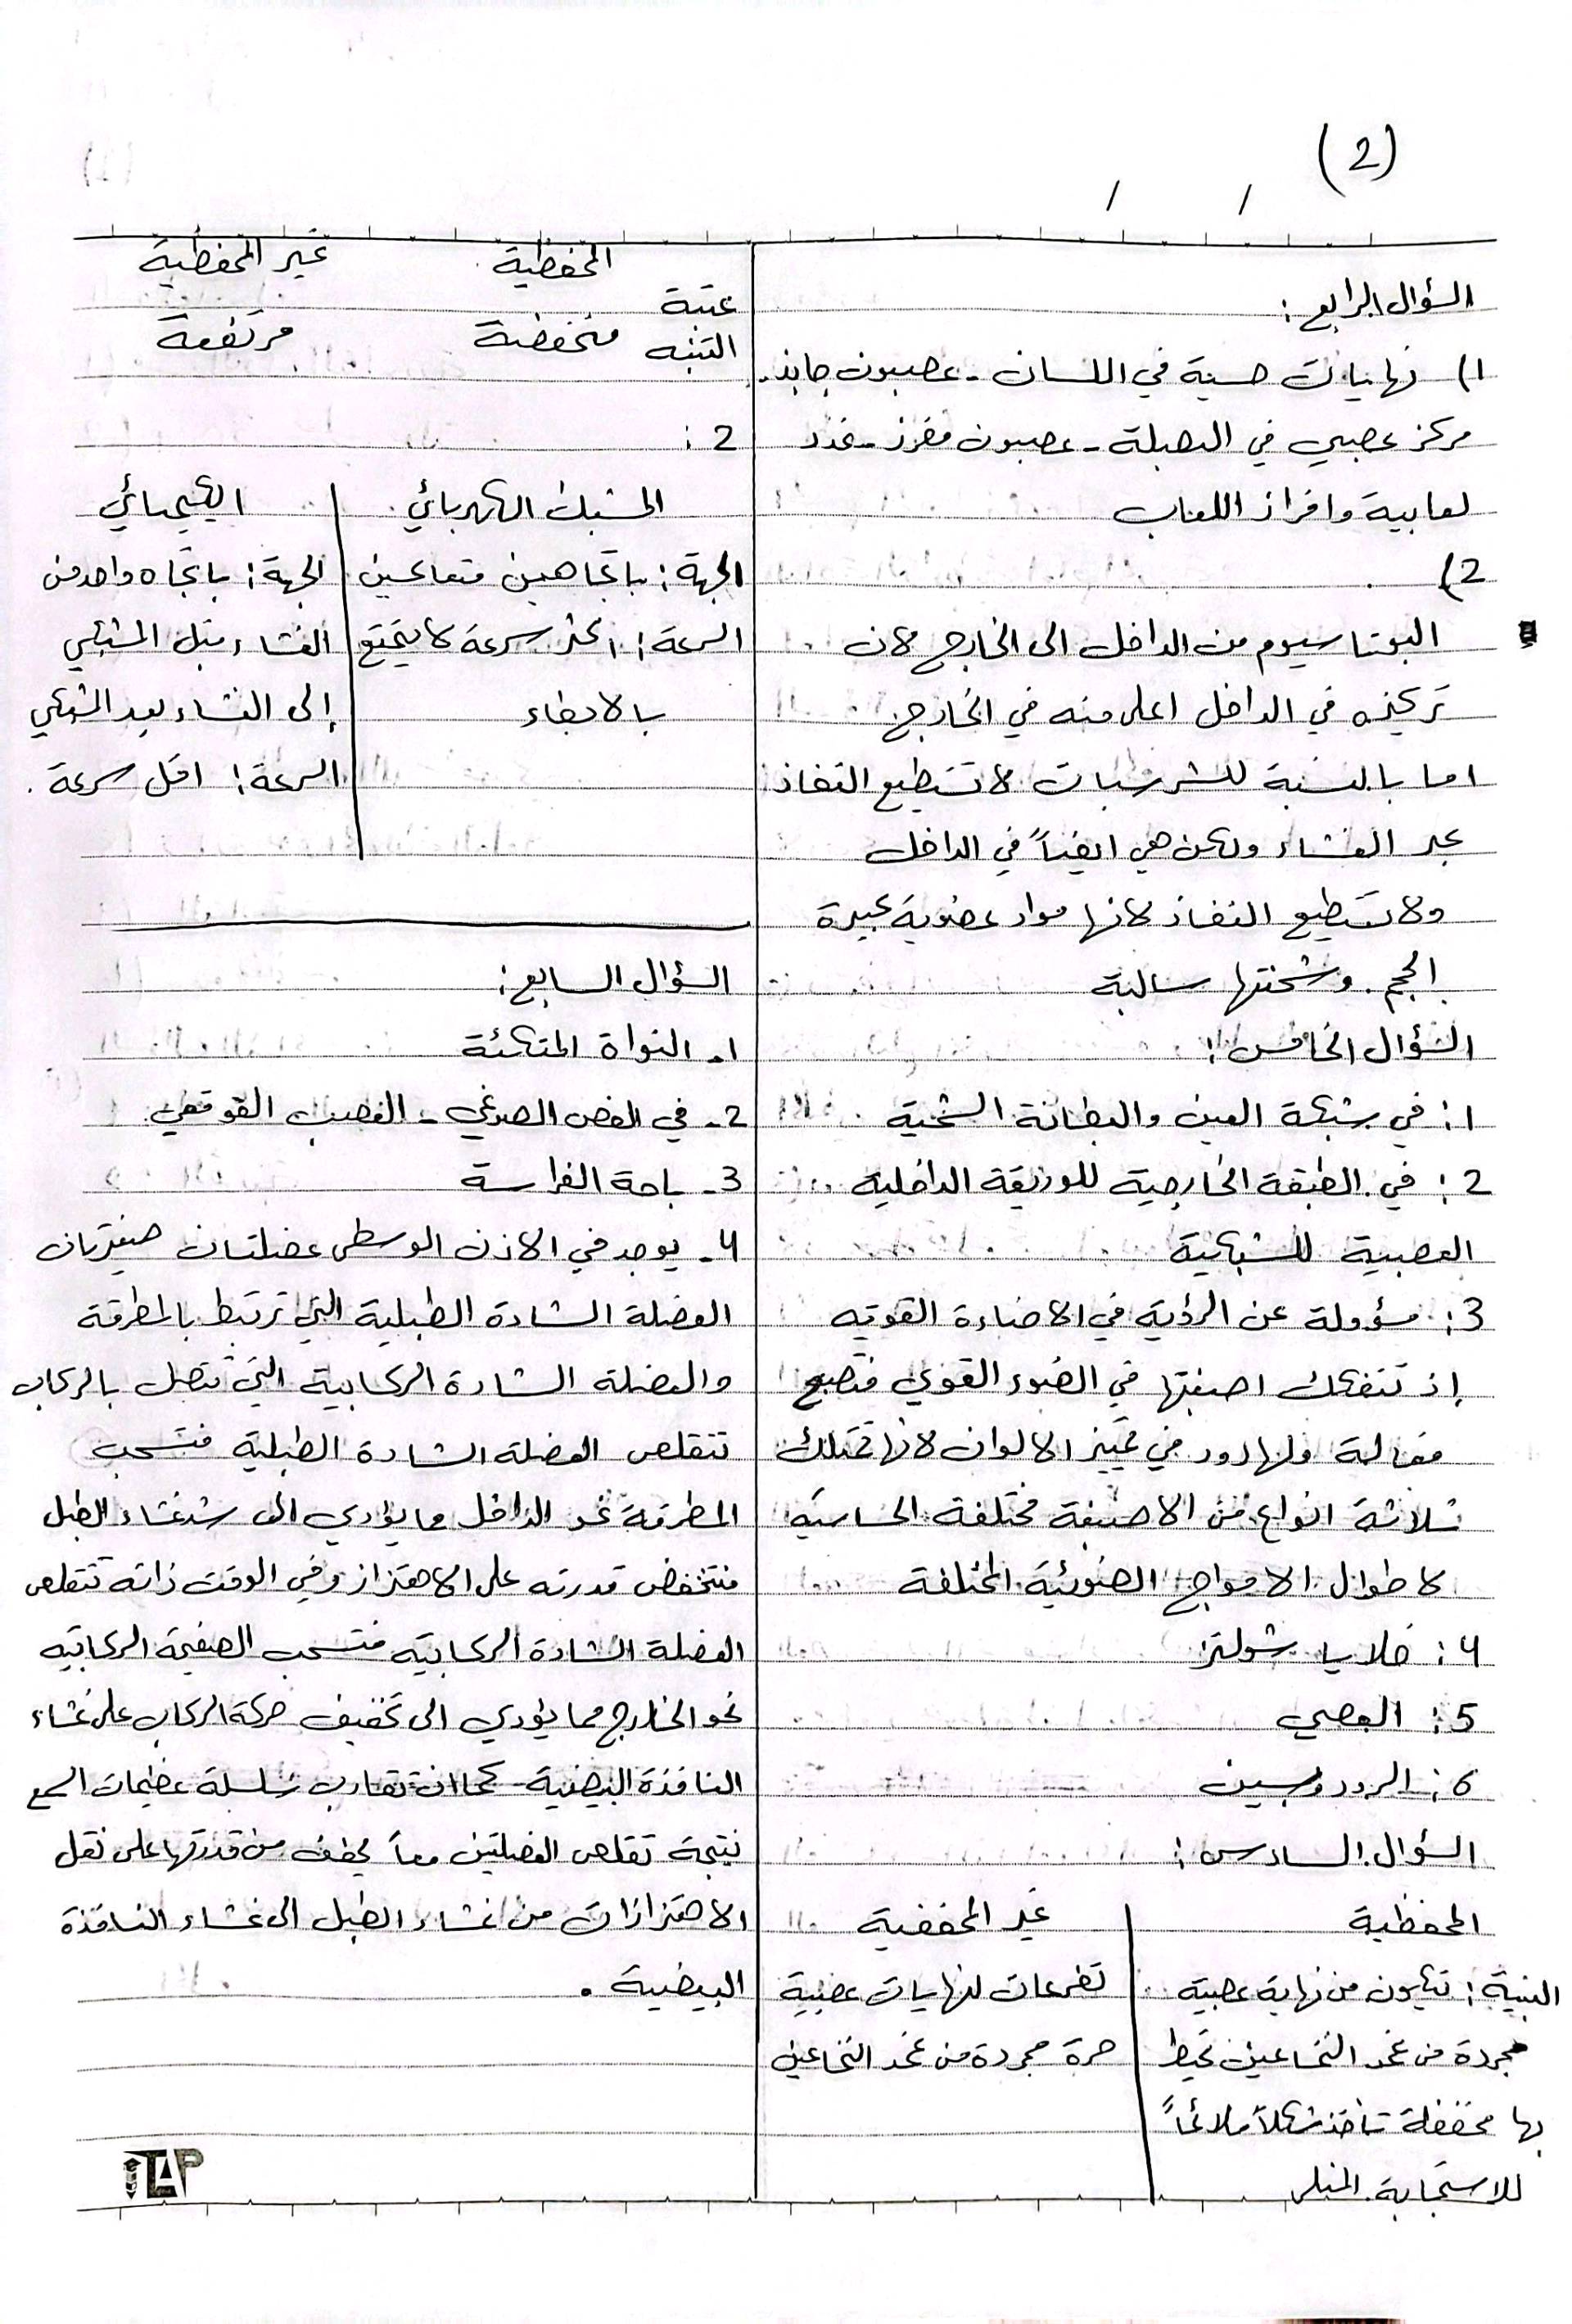 (2)
/ /
السؤال الرابع :
1) نهايات حسية في اللسان - عصبون جابذ -
مركز عصبي في البصلة - عصبون مفرز - غدد
لعابية وافراز اللعاب
2)
البوتاسيوم من الداخل الى الخارج لان
تركيزه في الداخل اعلى منه في الخارج
اما بالنسبة للشرسبات لا تستطيع النفاذ
عبر الغشاء ولكن هي ايضاً في الداخل
ولا تستطيع النفاذ لانها مواد عضوية كبيرة
الحجم وشحنتها سالبة
السؤال الخامس :
1: في شبكة العين والبطانة الشمية
2: في الطبقة الخارجية للوريقة الداخلية
العصبية للشبكية
3: مسؤولة عن الرؤية في الاضاءة القوية
إذ تتفكك اصبغتها في الضوء القوي فتصبح
فعالة ولها دور في تمييز الالوان لانها تمتلك
ثلاثة انواع من الاصبغة مختلفة الحساسية
لاطوال الامواج الضوئية المختلفة
4: خلايا شولتز
5: العصي
6: الرودوبسين
السؤال السادس :
المحفظية | غير المحفظية
البنية: تتكون من نهاية عصبية | تفرعات لنهايات عصبية
مجردة من غمد النخاعين تحيط | حرة مجردة من غمد النخاعين
بها محفظة تأخذ شكلاً ملائماً
للاستجابة
المحفظية غير المحفظية
عتبة
التنبه منخفضة مرتفعة
2 :
المشبك الكهربائي | الكيميائي
الجهة: باتجاهين متعاكسين | الجهة: باتجاه واحد من
السرعة: اكثر سرعة لا يتمتع | الغشاء قبل المشبكي
بالابطاء | إلى الغشاء بعد المشبكي
السرعة: اقل سرعة .
السؤال السابع :
1- النواة المتكئة
2- في الفص الصدغي - العصب القوقعي
3- باحة الفراسة
4- يوجد في الاذن الوسطى عضلتان صغيرتان
العضلة الشادة الطبلية التي ترتبط بالمطرقة
والعضلة الشادة الركابية التي تتصل بالركاب
تتقلص العضلة الشادة الطبلية فتسحب
المطرقة نحو الداخل مما يؤدي الى شد غشاء الطبل
فتنخفض قدرته على الاهتزاز وفي الوقت ذاته تتقلص
العضلة الشادة الركابية فتسحب الصفيحة الركابية
نحو الخارج مما يؤدي الى تخفيف حركة الركاب على غشاء
النافذة البيضية - كما ان تقارب سلسلة عظيمات السمع
نتيجة تقلص العضلتين معاً يخفف من قدرتها على نقل
الاهتزازات من غشاء الطبل الى غشاء النافذة
البيضية .
iTAP